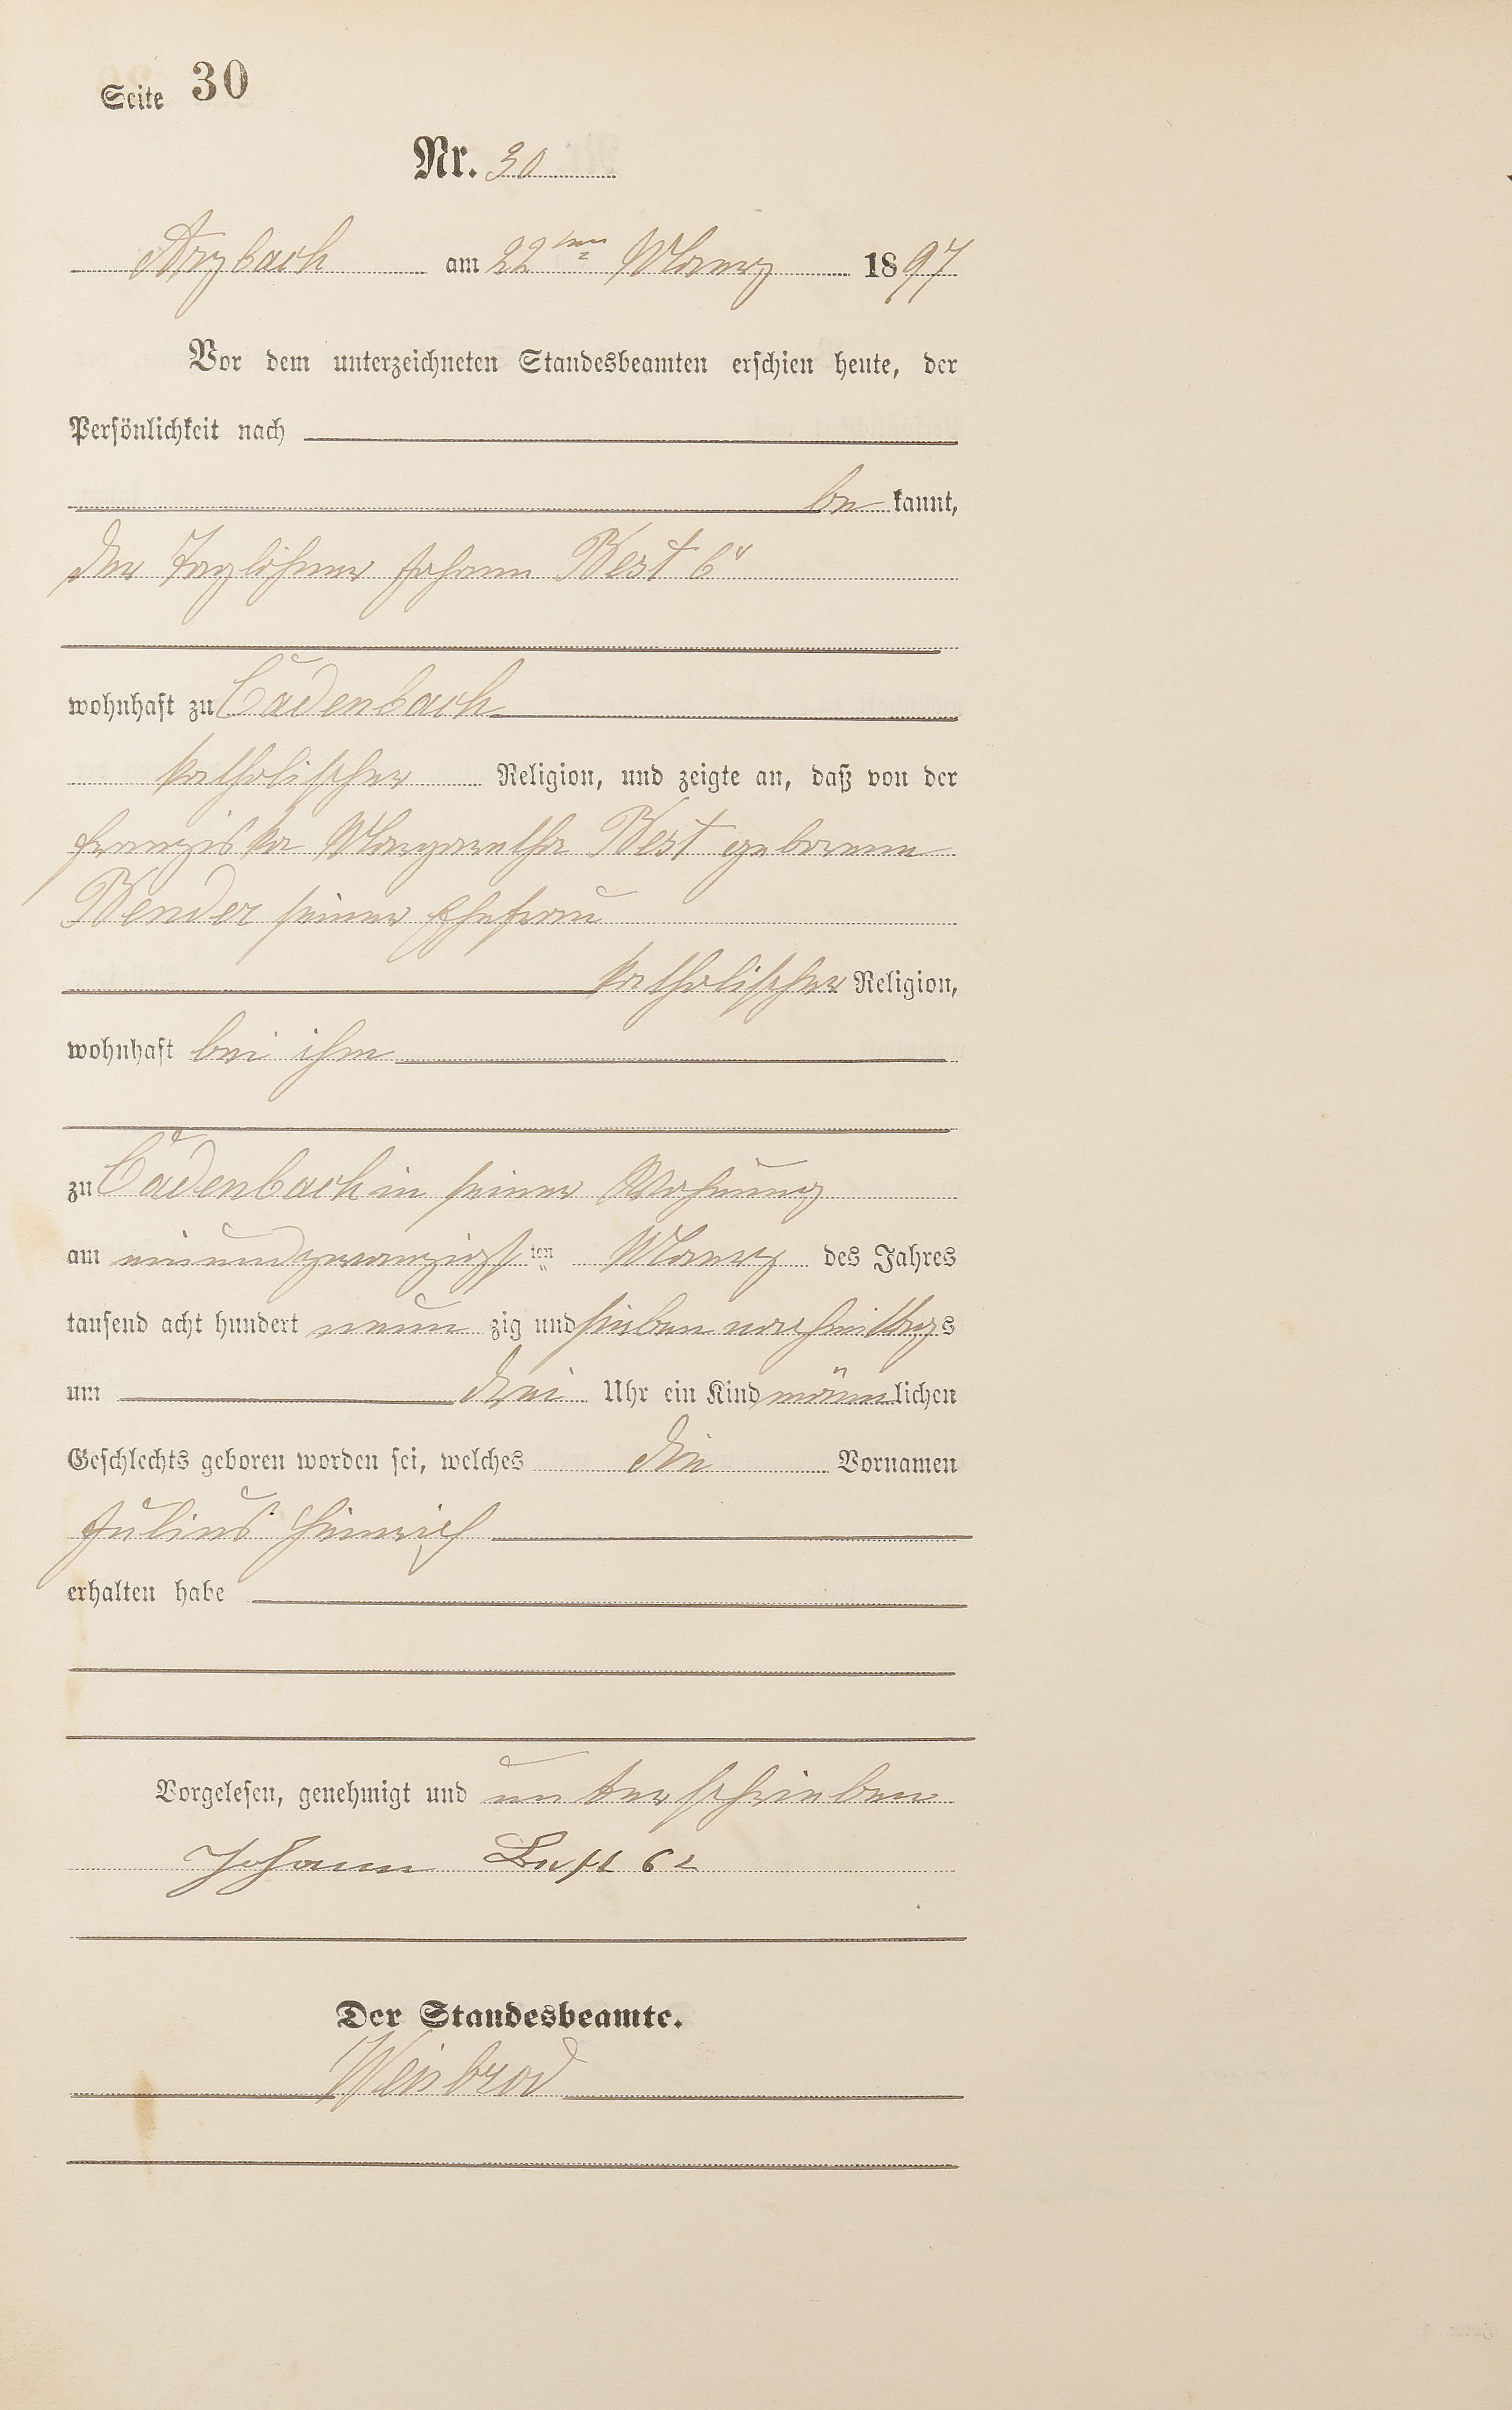 Seite 30
Nr. 30
Arzbach am 22ten März 1897
Vor dem unterzeichneten Standesbeamten erschien heute, der
Persönlichkeit nach
be kannt,
der Taglöhner Johann Best 6r
wohnhaft zu Cadenbach
katholischer Religion, und zeigte an, daß von der
Franziska Margaretha Best geborene
Bender seiner Ehefrau
katholischer Religion,
wohnhaft bei ihm
zu Cadenbach in seiner Wohnung
am einundzwanzigsten März des Jahres
tausend acht hundert neun zig und sieben nachmittags
um drei Uhr ein Kind männlichen
Geschlechts geboren worden sei, welches die Vornamen
Julius Heinrich
erhalten habe
Vorgelesen, genehmigt und unterschrieben
Johann Best 6r
Der Standesbeamte.
Weisbrod